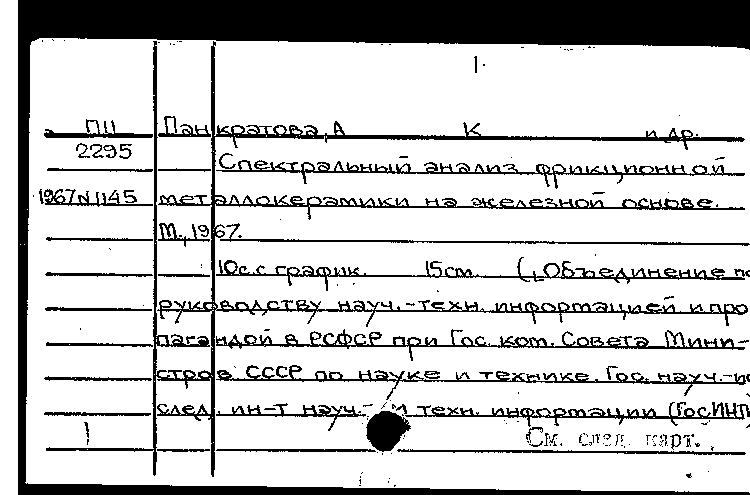 1.
ПЦ Панкратова, А К и др.
2295 Спектральный анализ фрикционной
1967 N 1145 металлокерамики на железной основе.
М., 1967.
10с. с график. 15см. (Объединение по
руководству науч.-техн. информацией и про
пагандой в РСФСР при Гос. ком. Совета Мини-
стров СССР по науке и технике. Гос. науч.-ис
след. ин-т науч.- и техн. информации (ГосИНТИ
1 См. след. карт.